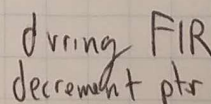 during FIR
decrement ptr